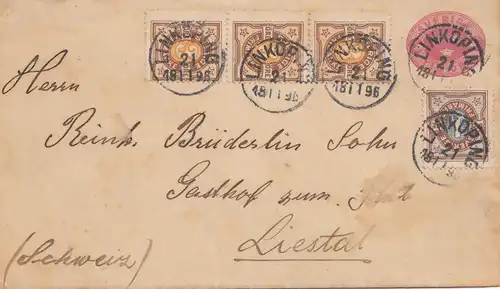 LINKÖPING
21
18 1 1 96
LINKÖPING
21
18 1 1 96
LINKÖPING
21
18 1 1 96
LINKÖPING
21
18 1
LINKÖPING
21
18 1 1 96
Herrn
Reinh. Brüderlin Sohn
Gasthof zum
Liestal
(Schweiz)